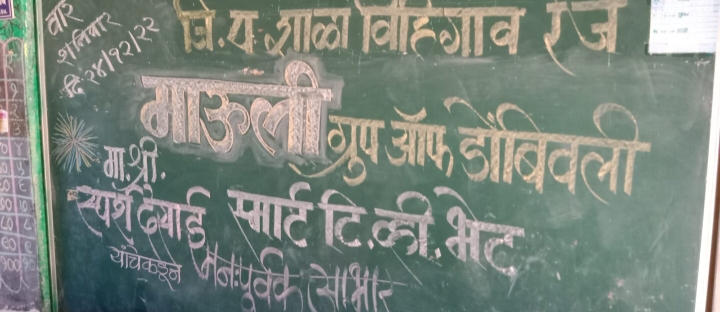 वार
शनिवार
दि. २४/१२/२२
जि.प. शाळा विहिगाव
माऊली ग्रुप ऑफ डोंबिवली
मा. श्री.
स्पर्श देसाई स्मार्ट टि.व्ही. भेट
यांचेकडून मनःपुर्वक साभार